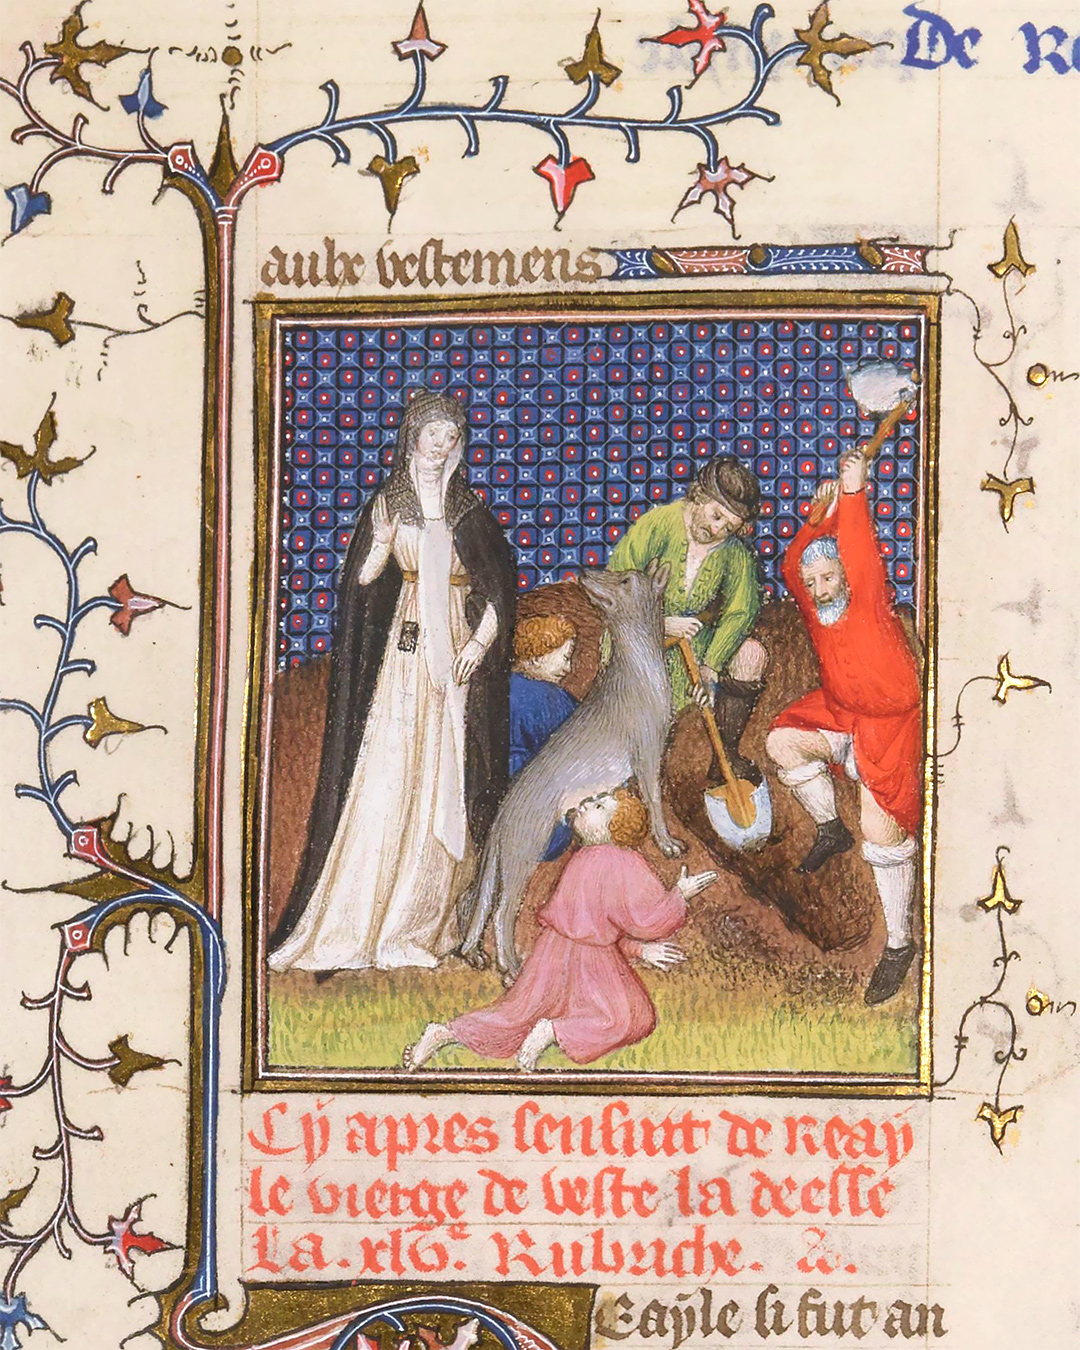 De Re
aulx vestemens
Cy apres sensuit de reay
le vierge de veste la deesse
La .xlv.e Rubriche. &.
Eayle si fut an